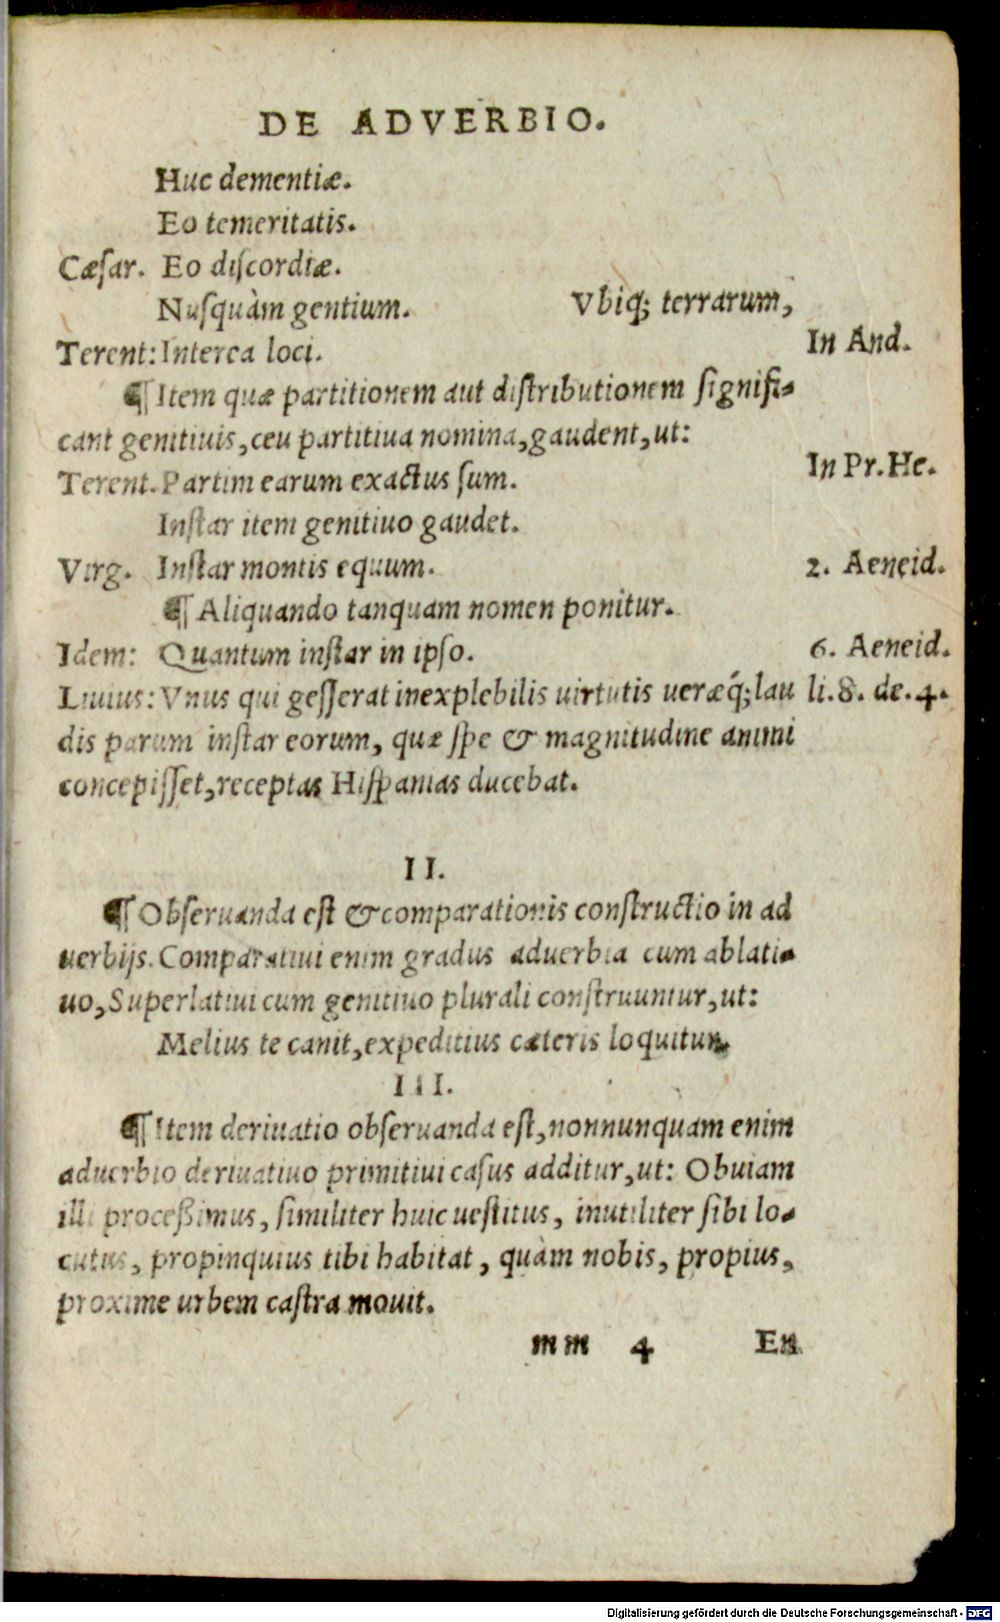 DE ADVERBIO.
Huc dementiæ.
Eo temeritatis.
Cæsar. Eo discordiæ.
Nusquàm gentium. Vbiq; terrarum,
Terent: Interea loci. In And.
¶ Item quæ partitionem aut distributionem signifi-
cant genitiuis, ceu partitiua nomina, gaudent, ut:
Terent. Partim earum exactus sum. In Pr. He.
Instar item genitiuo gaudet.
Virg. Instar montis equum. 2. Aeneid.
¶ Aliquando tanquam nomen ponitur.
Idem: Quantum instar in ipso. 6. Aeneid.
Liuius: Vnus qui gesserat inexplebilis uirtutis ueræq́; lau li. 8. de. 4.
dis parum instar eorum, quæ spe & magnitudine animi
concepisset, receptas Hispanias ducebat.
II.
¶ Obseruanda est & comparationis constructio in ad
uerbijs. Comparatiui enim gradus aduerbia cum ablati-
uo, Superlatiui cum genitiuo plurali construuntur, ut:
Melius te canit, expeditius cæteris loquitur.
III.
¶ Item deriuatio obseruanda est, nonnunquam enim
aduerbio deriuatiuo primitiui casus additur, ut: Obuiam
illi processimus, similiter huic uestitus, inutiliter sibi lo-
cutus, propinquius tibi habitat, quàm nobis, propius,
proxime urbem castra mouit.
mm 4 En
Digitalisierung gefördert durch die Deutsche Forschungsgemeinschaft - DFG